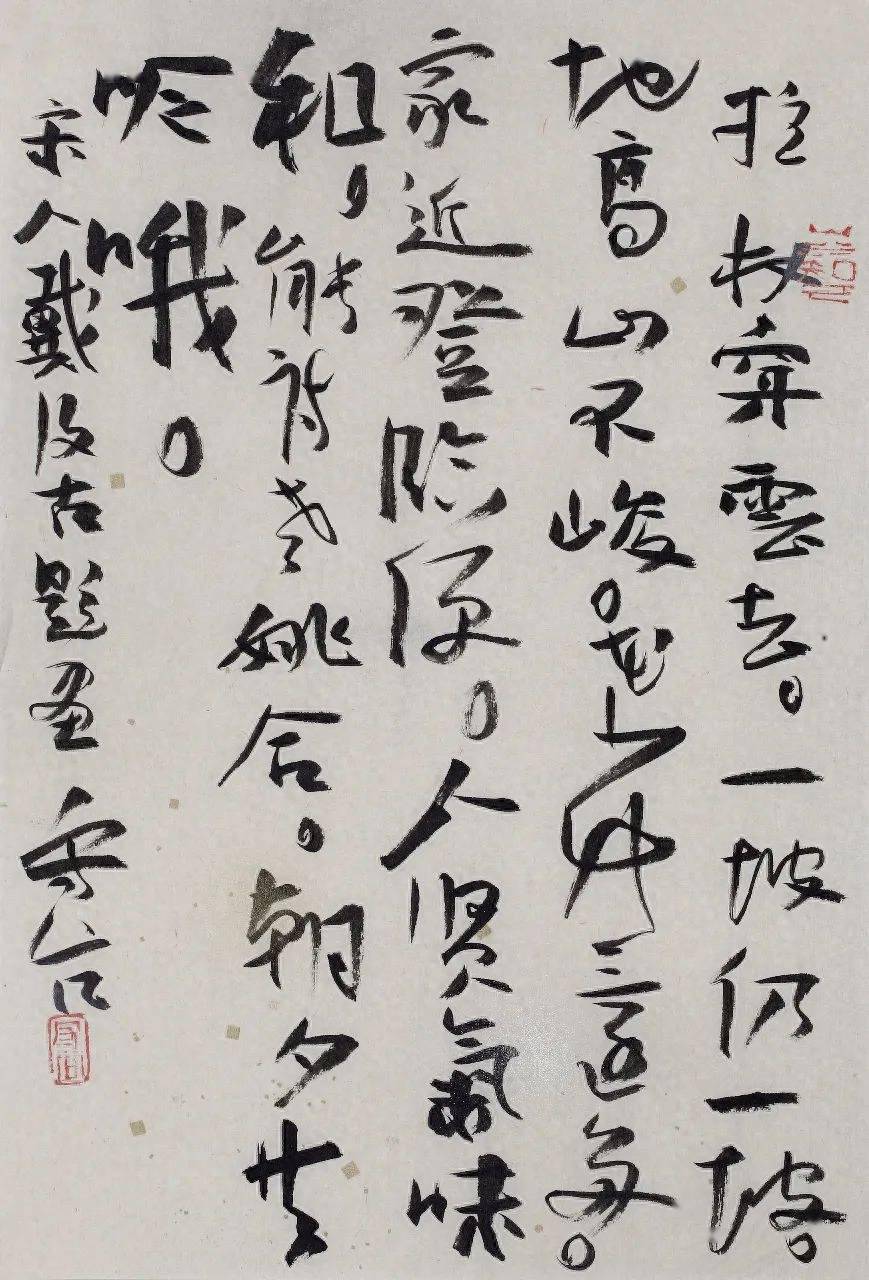 拄杖穿雲去。一坡仍一坡。
地高山不峻。花還多。
家近登臨便。人賢氣味
和。能詩老姚合。朝夕共
吟哦。
宋人戴復古題畫